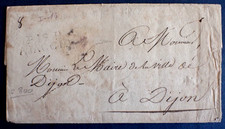 A Monsieur
Monsieur le Maire de la Ville de
Dijon
à Dijon